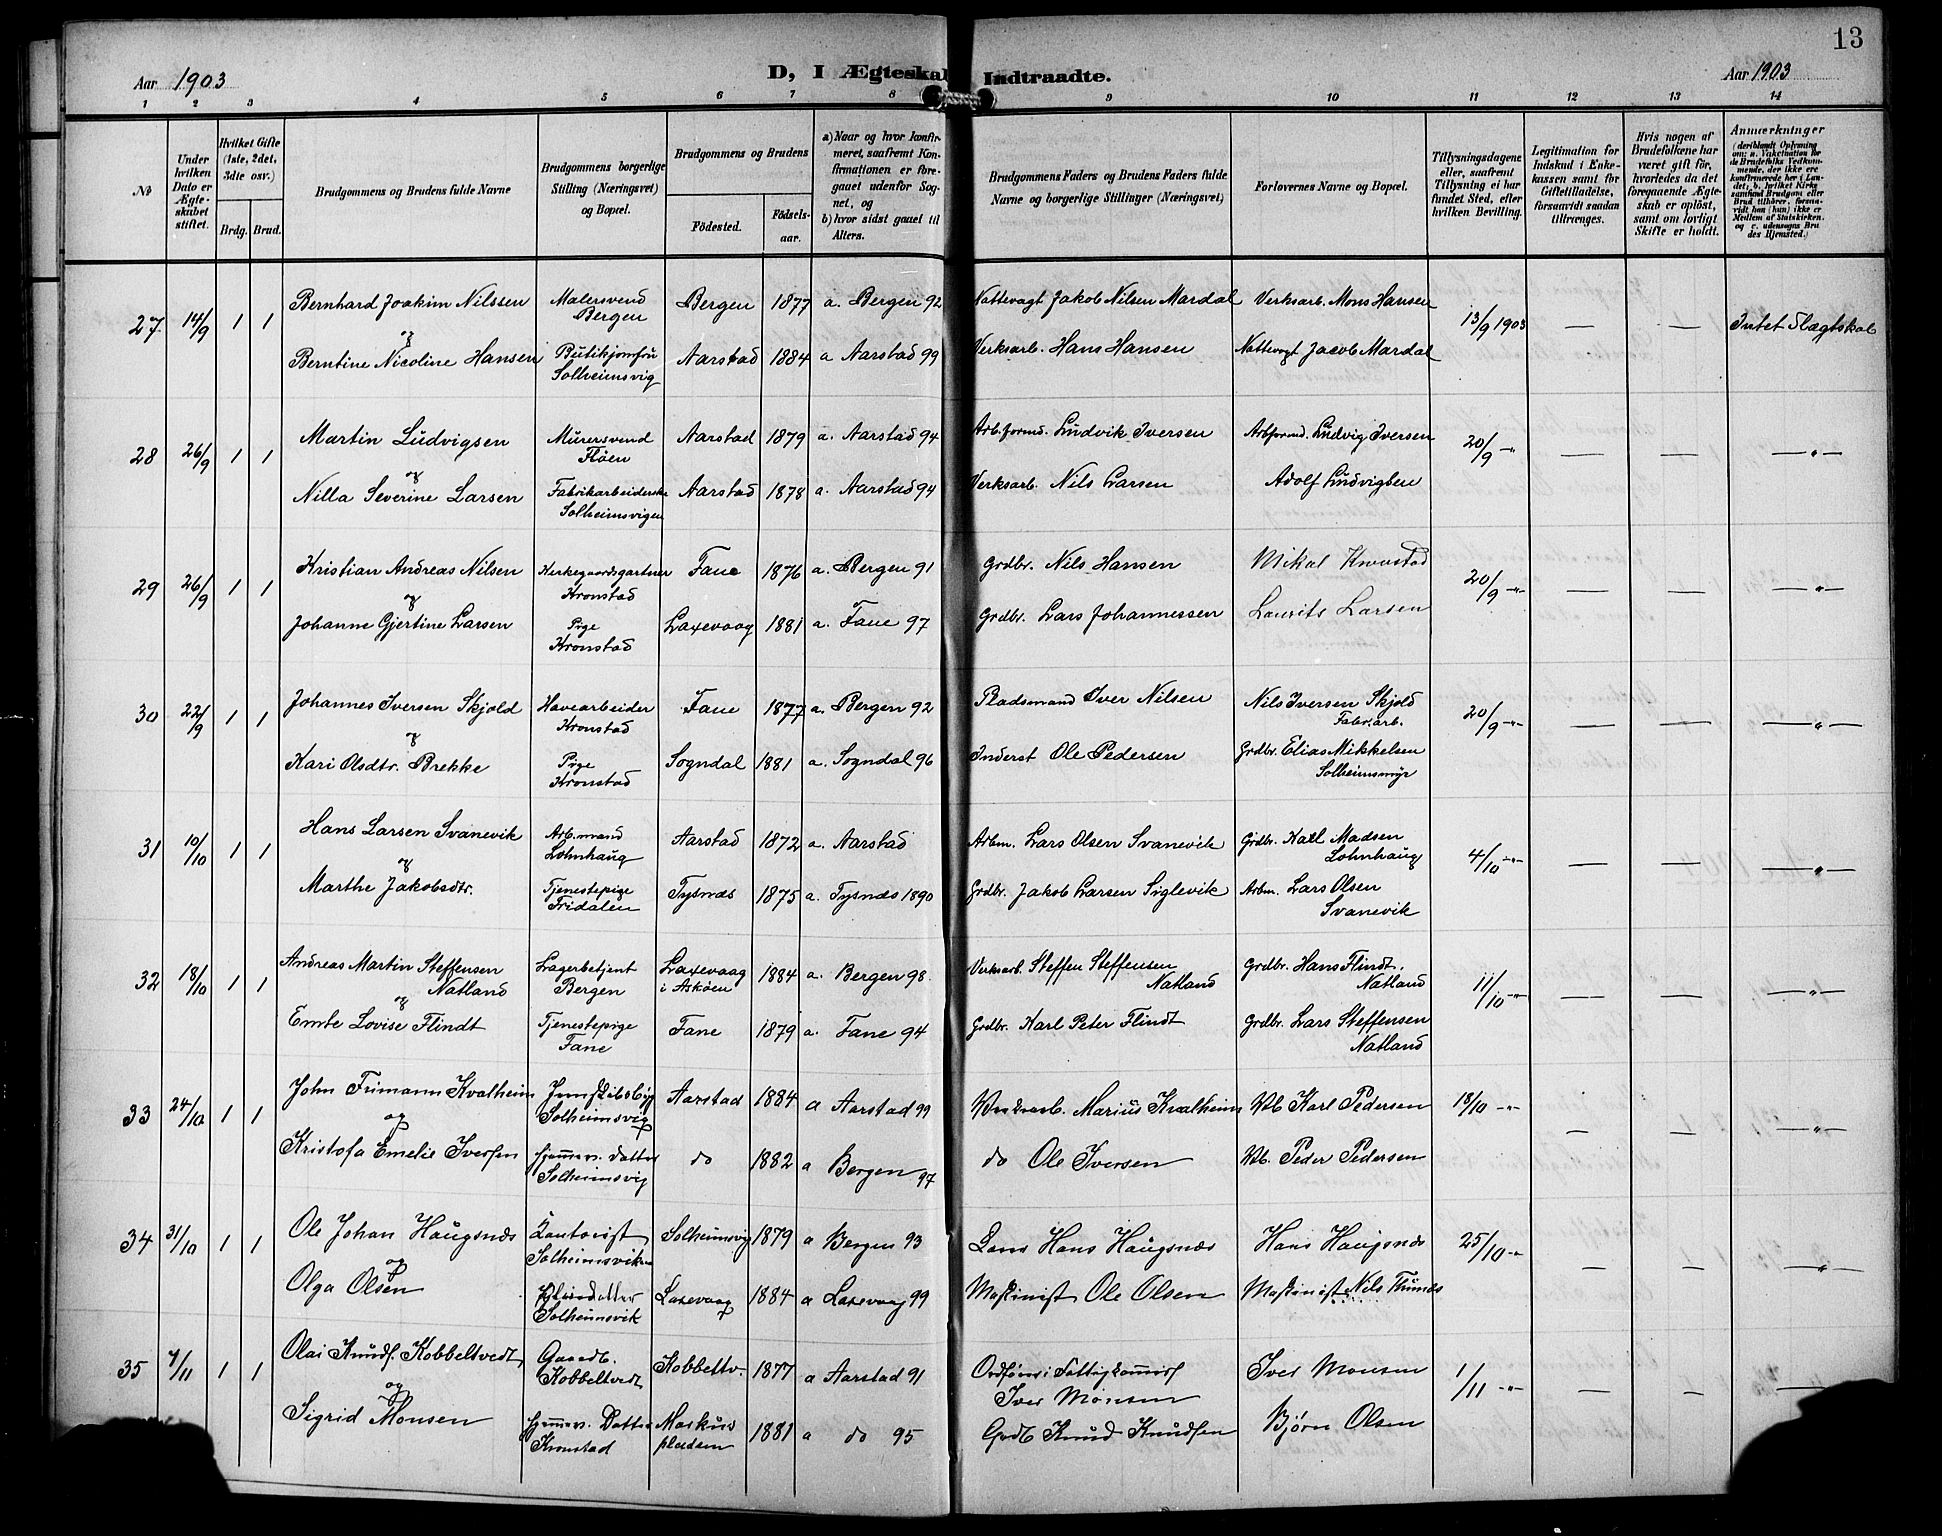 13
Aar 1903 D, I Ægteskab Indtraadte. Aar 1903
1 2 3 4 5 6 7 8 9 10 11 12 13 14
No
Under hvilken Dato er Ægteskabet stiftet.
Hvilket Gifte (1ste, 2det, 3die osv.)
Brdg. Brud.
Brudgommens og Brudens fulde Navne
Brudgommens borgerlige Stilling (Næringsvei) og Bopæl.
Brudgommens og Brudens
Fødested. Fødsels-aar.
a) Naar og hvor konfirmeret, saafremt Konfirmationen er foregaaet udenfor Sognet, og
b) hvor sidst gaaet til Alters.
Brudgommens Faders og Brudens Faders fulde Navne og borgerlige Stillinger (Næringsvei)
Forlovernes Navne og Bopæl.
Tillysningsdagene eller, saafremt Tillysning ei har fundet Sted, efter hvilken Bevilling.
Legitimation for Indskud i Enkekassen samt for Giftetilladelse, forsaavidt saadan tiltrænges.
Hvis nogen af Brudefolkene har været gift før, hvorledes da det foregaaende Ægteskab er opløst, samt om lovligt Skifte er holdt.
Anmærkninger
(deriblandt Oplysning om: a. Vakcination for de Brudefolks Vedkommende, der ikke ere konfirmerede her i Landet; b. hvilket Kirkesamfund Brudgom eller Brud tilhører, forsaavidt han (hun) ikke er Medlem af Statskirken. og c. udensogns Brudes Hjemsted.)
27 14/9 1 1 Bernhard Joakim Nilssen Malersvend Bergen Bergen 1877 a. Bergen 92 Nattevagt Jakob Nilsen Mardal Verksarb. Mons Hansen 13/9 1903 — — Intet Slægtskab
og
Berntine Nicoline Hansen Butikjomfru Solheimsvig Aarstad 1884 a Aarstad 99 Verksarb. Hans Hansen Nattevagt Jacob Mardal
28 26/9 1 1 Martin Ludvigsen Murersvend Fløen Aarstad 1879 a. Aarstad 94 Arb.formd. Ludvik Iversen Arbformd. Ludvig Iversen 20/9 -"- — — —"—
og
Nilla Severine Larsen Fabrikarbeiderske Solheimsvigen Aarstad 1878 a. Aarstad 94 Verksarb. Nils Larsen Adolf Ludvigsen
29 26/9 1 1 Kristian Andreas Nilsen Kirkegaardsgartner Kronstad Fane 1876 a. Bergen 91 Grdbr. Nils Hansen Mikal 20/9 -"- — — —"—
og
Johanne Gjertine Larsen Pige Kronstad Laxevaag 1881 a. Fane 97 Grdbr. Lars Johannessen Laurits Larsen
30 22/9 1 1 Johannes Iversen Skjold Havearbeider Kronstad Fane 1877 a. Bergen 92 Pladsmand Iver Nilsen Nils Iversen Skjold Fabr.arb. 20/9 -"- — — —"—
og
Kari Olsdtr. Brekke Pige Kronstad Sogndal 1881 a. Sogndal 96 Inderst Ole Pedersen Grdbr. Elias Mikkelsen Solheimsmyr
31 10/10 1 1 Hans Larsen Svanevik Arb.mand Lohnhaug Aarstad 1872 a. Aarstad Arbm. Lars Olsen Svanevik Grdbr. Karl Madsen Lohnhaug 4/10 -"- — — —"—
og
Marthe Jakobsdtr. Tjenestepige Fridalen Tysnæs 1875 a. Tysnæs 1890 Grdbr. Jakob Larsen Siglevik Arbm. Lars Olsen Svanevik
32 18/10 1 1 Andreas Martin Steffensen Natland Lagerbetjent Bergen Laxevaag i Askøen 1884 a. Bergen 98 Verksarb. Steffen Steffensen Natland Grdbr. Hans Flindt. Natland 11/10 -"- — — —"—
og
Emte Lovise Flindt Tjenestepige Fane Fane 1879 a. Fane 94 Grdbr. Karl Peter Flindt Grdbr. Lars Steffensen Natland
33 24/10 1 1 John Frimann Kvalheim Solheimsvig Aarstad 1884 a Aarstad 99 Marius Kvalheim Karl Pedersen 18/10 -"- — — —"—
og
Kristofa Emelie Iversen Datter Solheimsvig do 1882 a Bergen 97 do Ole Iversen Peder Pedersen
34 31/10 1 1 Ole Johan Haugsnæs Kontorist Solheimsviken Solheimsvig 1879 a Bergen 93 Hans Haugsnæs Hans Haugsnæs 25/10 -"- — — —"—
og
Olga Olsen Solheimsvik Laxevaag 1884 a Laxevaag 99 Maskinist Ole Olsen Maskinist Nils
35 7/11 1 1 Olai Knuds. Kobbeltvedt Gaardb. Kobbeltvedt Kobbeltv. 1877 a Aarstad 91 Iver Monsen Iver Monsen 1/11 -"- — —
og
Sigrid Monsen Datter Kronstad Markus pladsen 1881 a do 95 Grdb Knud Knudsen Bjørn Olsen